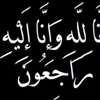 إِنَّا لِلَّٰهِ وَإِنَّا إِلَيْهِ
رَاجِعُونَ